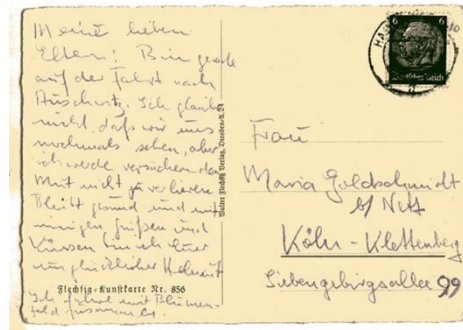 Meine lieben
Eltern! Bin gerade
auf der Fahrt nach
Auschwitz. Ich glaube
nicht, daß wir uns
nochmals sehen, aber
ich werde versuchen den
Mut nicht zu verlieren
Bleibt gesund und mit
innigen Grüßen und
Küssen bin ich Euer
unglücklicher Helmut
Ich fahre mit Blumen-
feld zusammen.
Flechsig-Kunstkarte Nr. 856
Walter Flechsig Verlag, Dresden-A. 24
6 6
Deutsches Reich
Frau
Maria Goldschmidt
b/
Köln-Klettenberg
Siebengebirgsallee 99